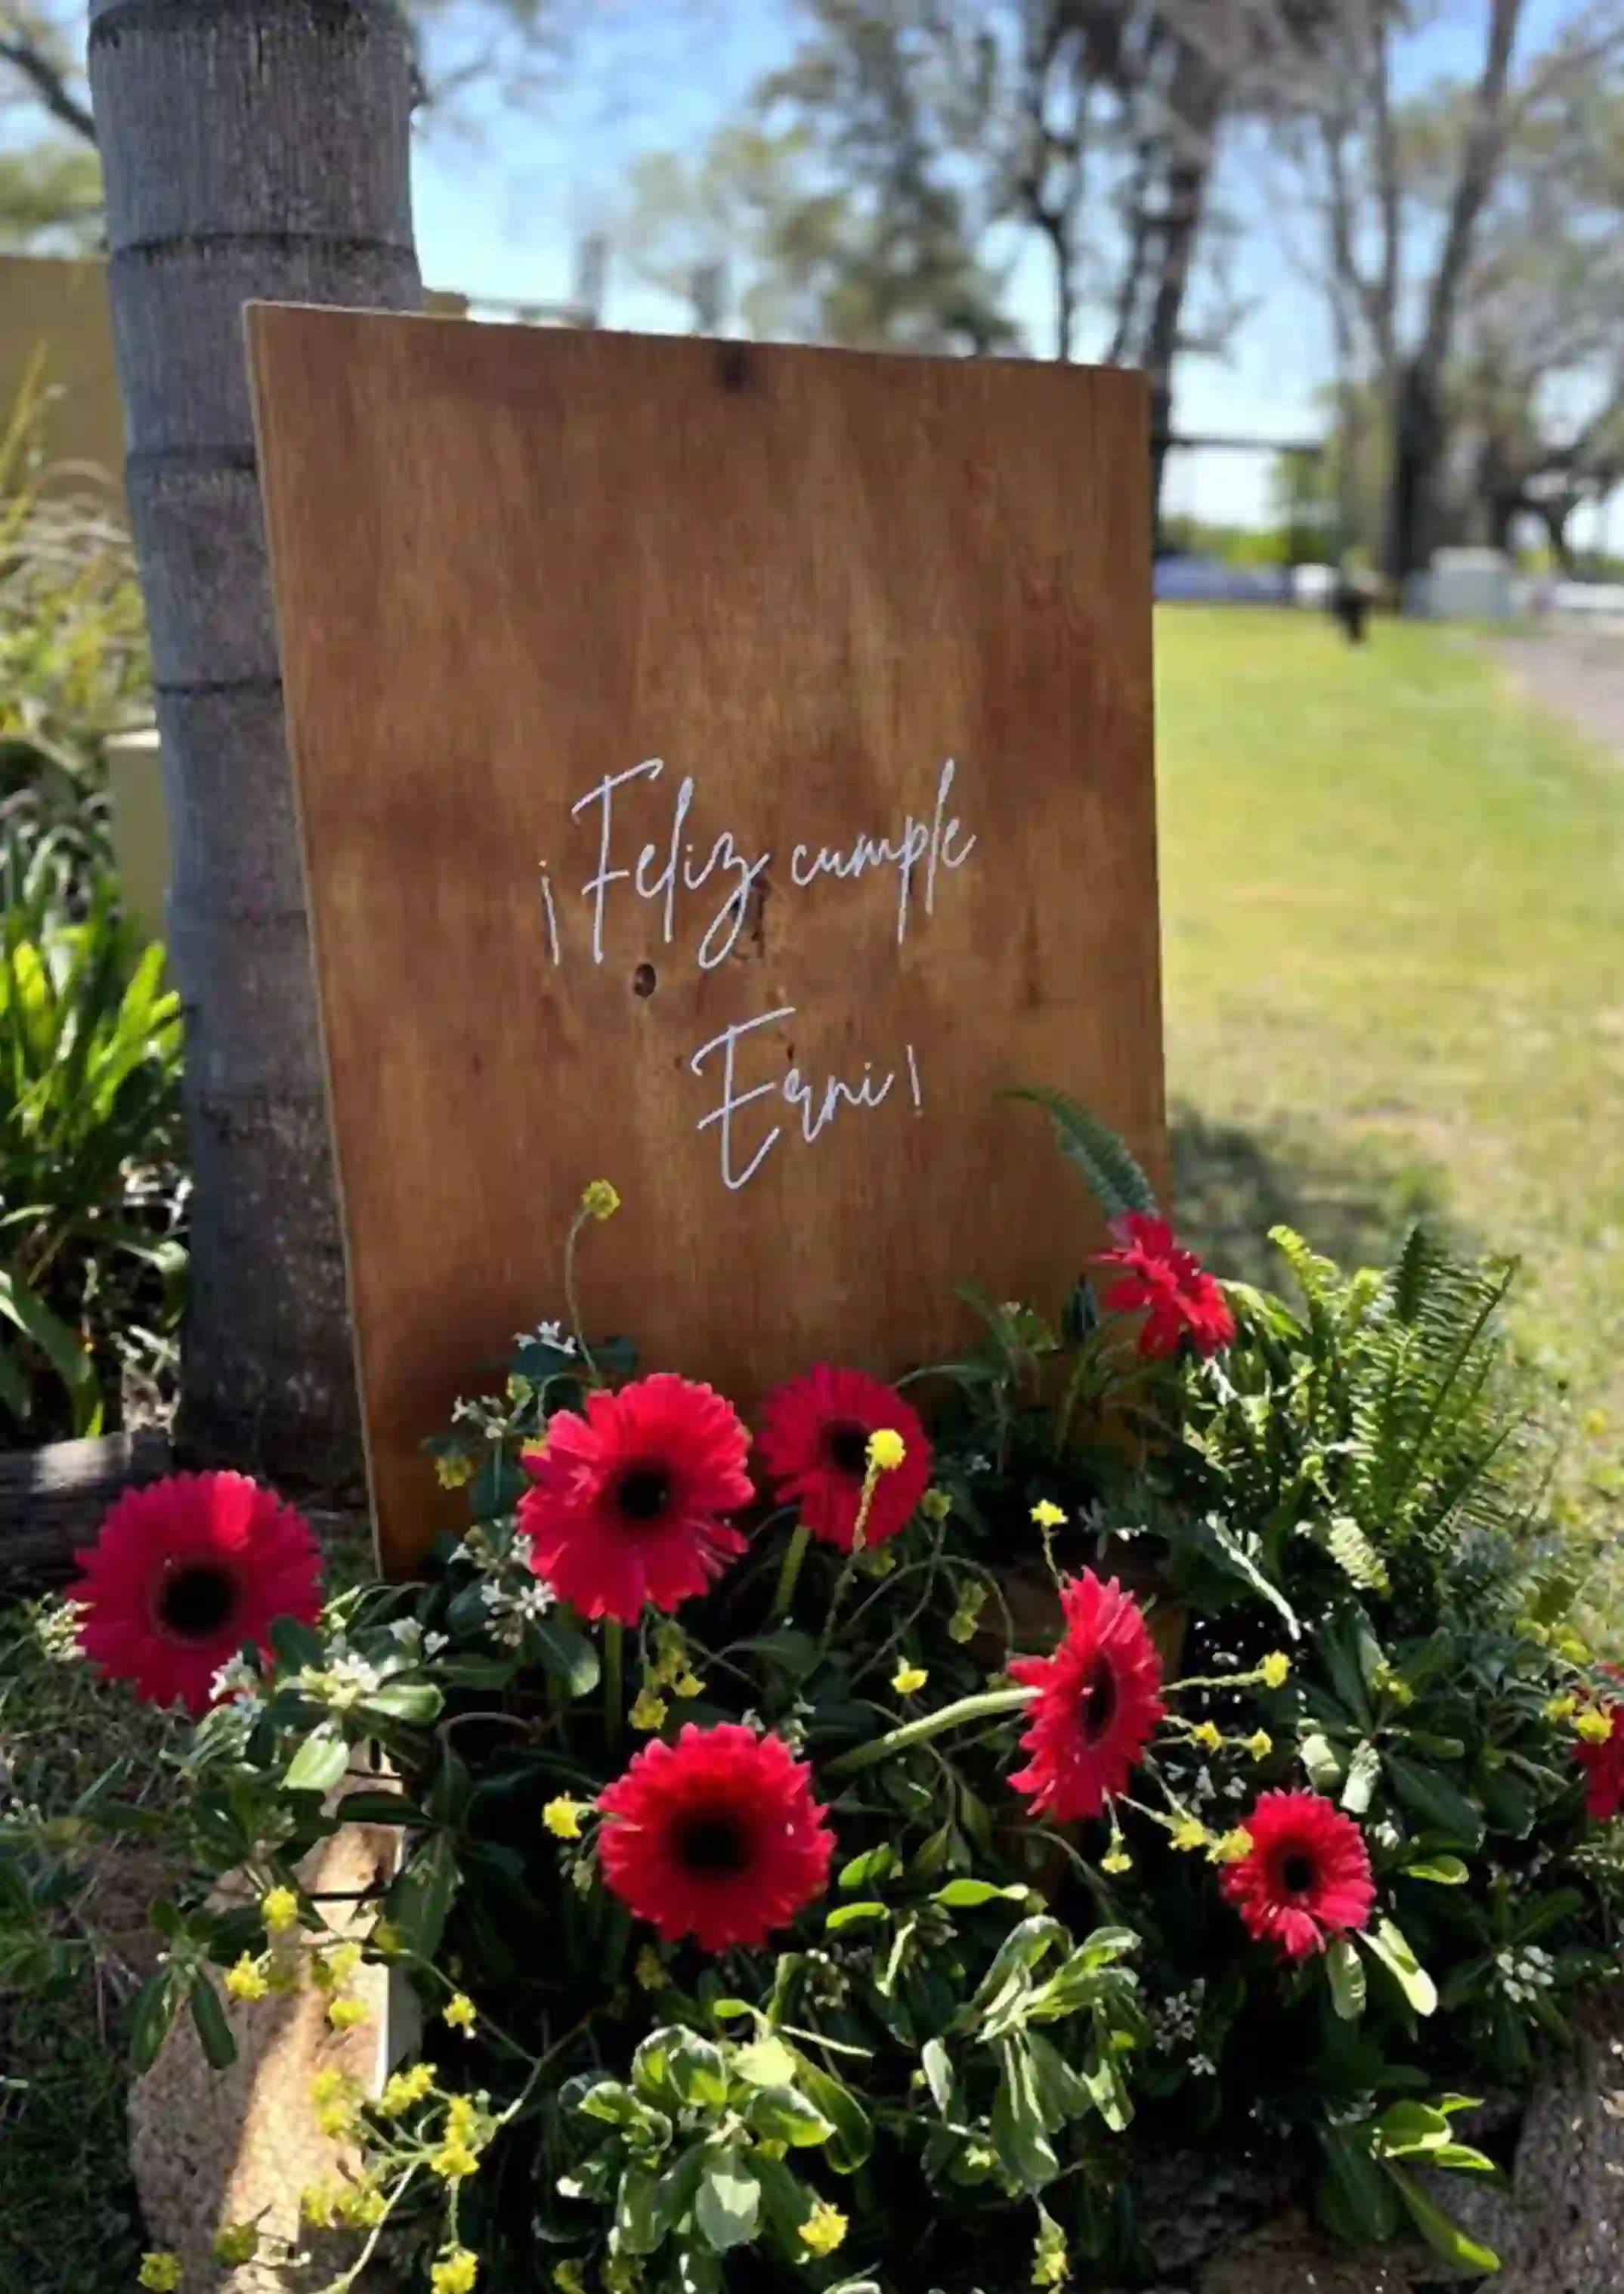 ¡Feliz cumple
Erni!